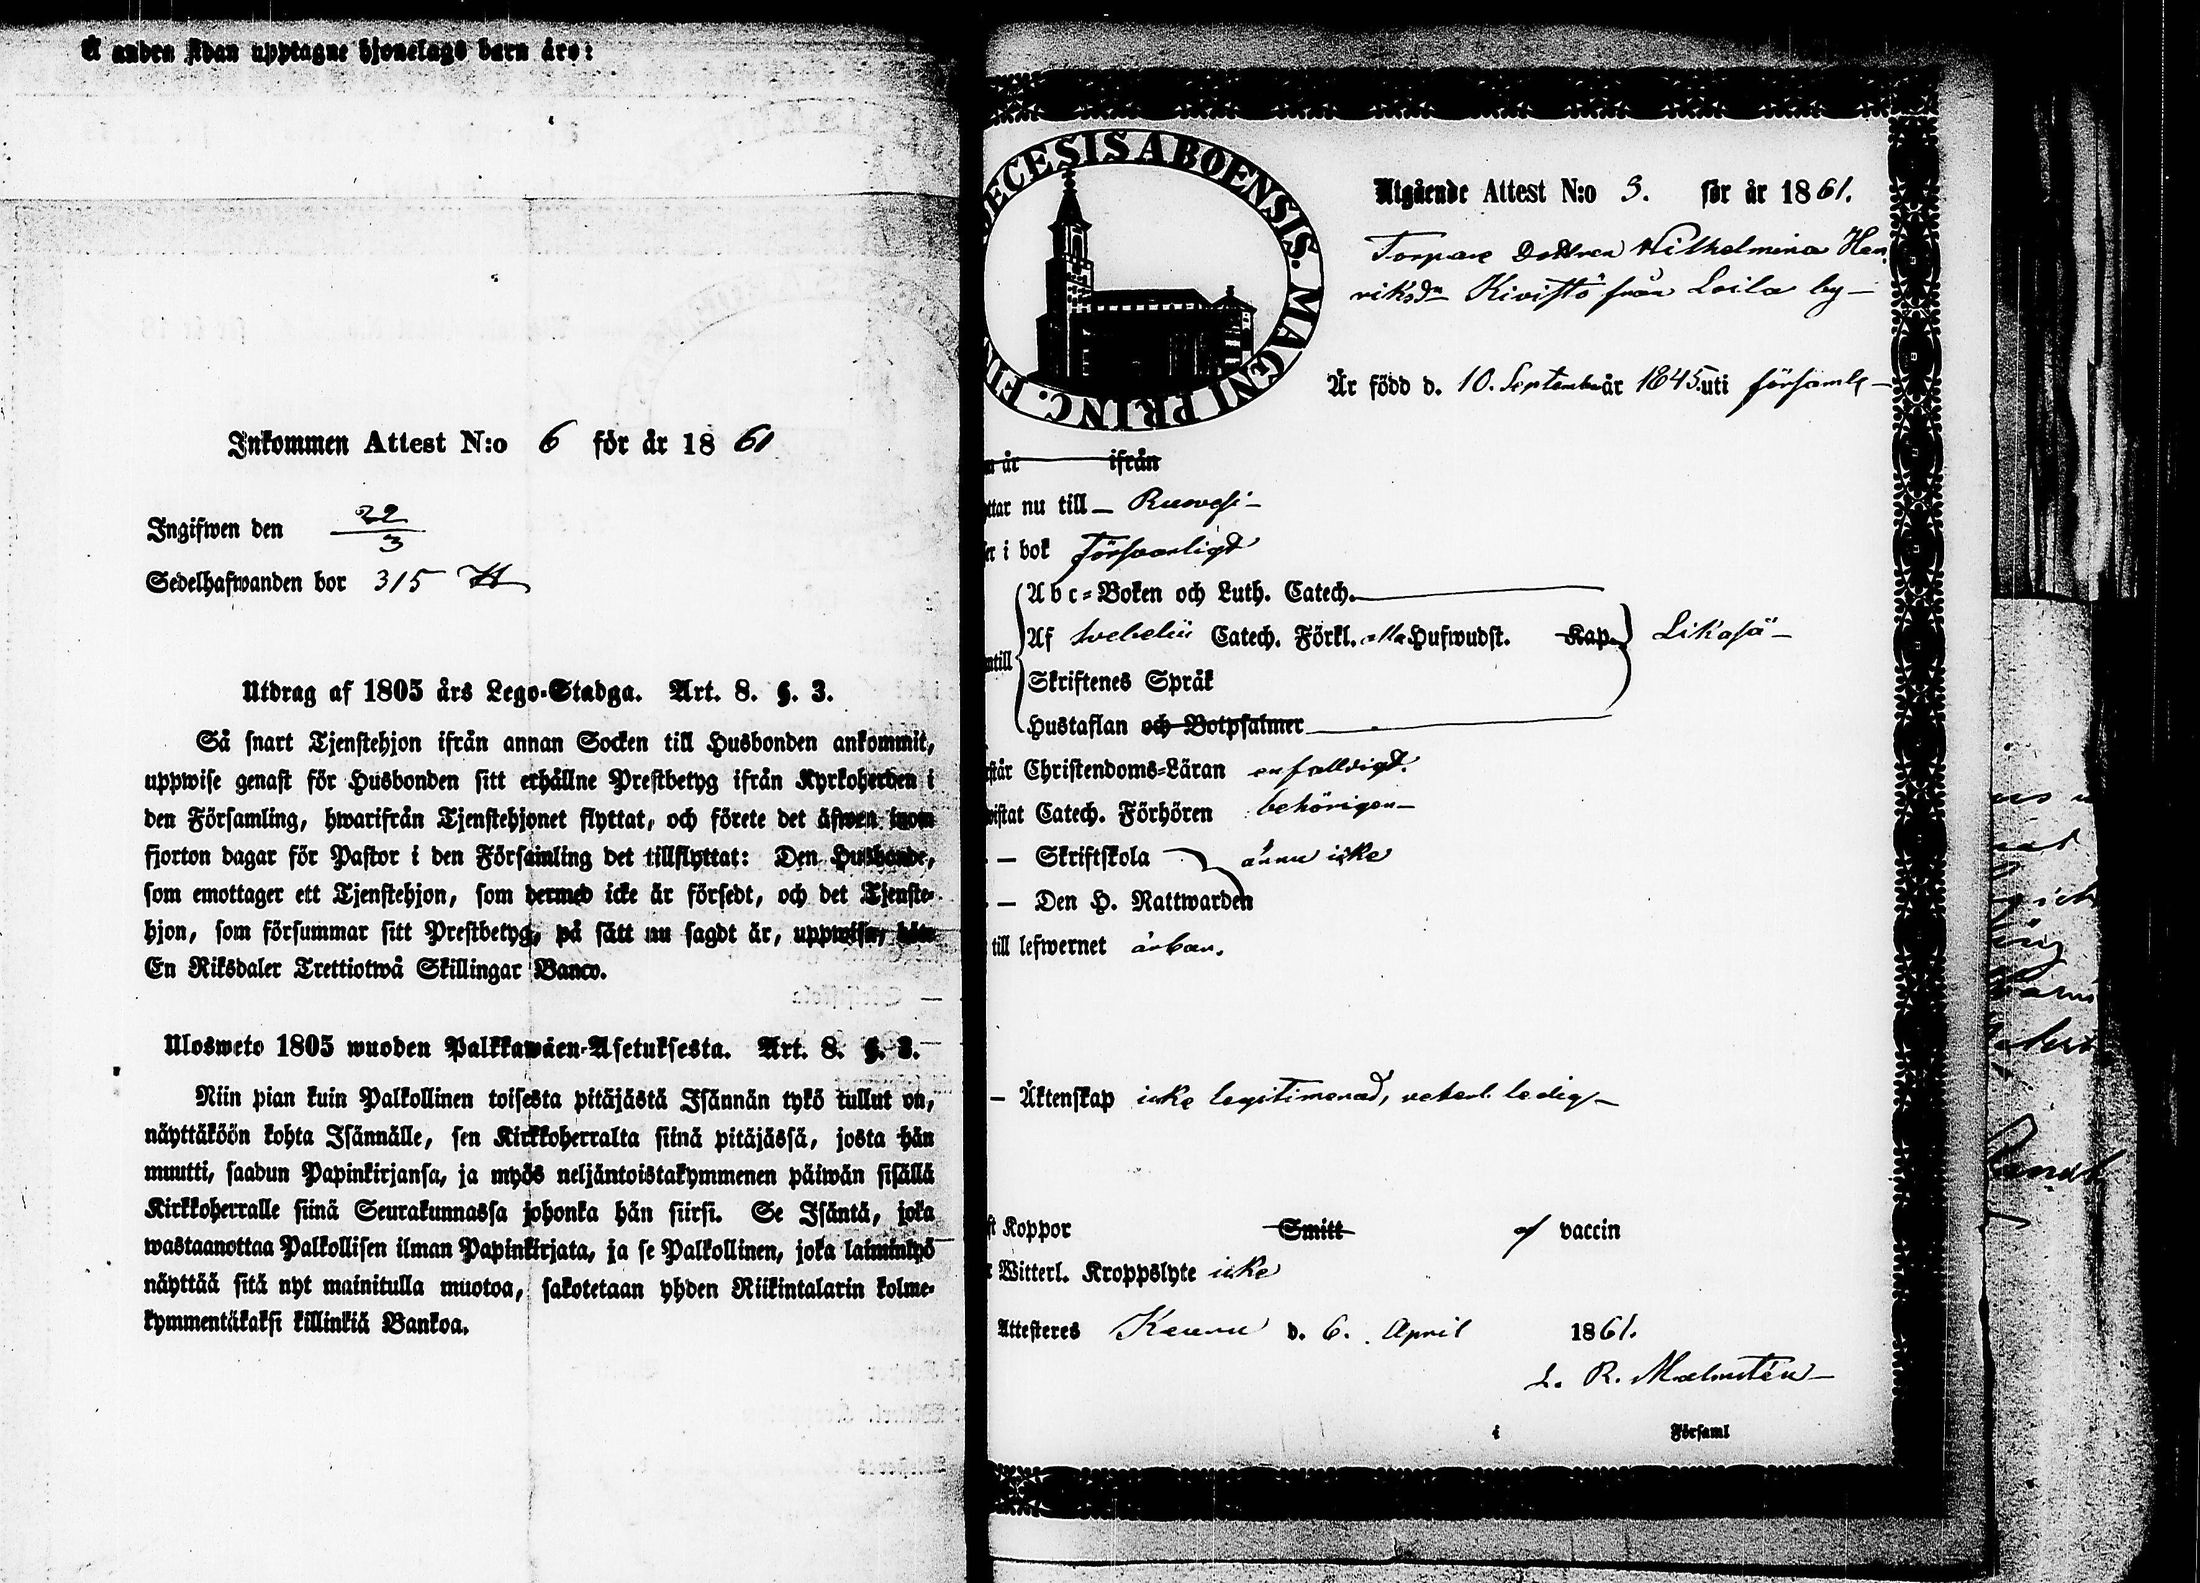 Å andra sidan upptagne hjonelags barn äro:
Inkommen Attest N:o 6 för år 1861
Ingifwen den 22/3
Sedelhafwanden bor 315
Utdrag af 1805 års Lego-Stadga. Art. 8. §. 3.
Så snart Tjenstehjon ifrån annan Socken till Husbonden ankommit,
uppwise genast för Husbonden sitt erhållne Prestbetyg ifrån Kyrkoherden i
den Församling, hwarifrån Tjenstehjonet flyttat, och förete det äfwen inom
fjorton dagar för Pastor i den Församling det tillflyttat: Den Husbonde,
som emottager ett Tjenstehjon, som dermed icke är försedt, och det Tjenste-
hjon, som försummar sitt Prestbetyg, på sätt nu sagdt är, uppwisa, böte
En Riksdaler Trettiotwå Skillingar Banco.
Ulosweto 1805 wuoden Palkkawäen-Asetuksesta. Art. 8. §. 3.
Niin pian kuin Palkollinen toisesta pitäjästä Isännän tykö tullut on,
näyttäköön kohta Isännälle, sen Kirkkoherralta siinä pitäjässä, josta hän
muutti, saadun Papinkirjansa, ja myös neljäntoistakymmenen päiwän sisällä
Kirkkoherralle siinä Seurakunnassa johonka hän siirsi. Se Isäntä, joka
wastaanottaa Palkollisen ilman Papinkirjata, ja se Palkollinen, joka laiminlyö
näyttää sitä nyt mainitulla muotoa, sakotetaan yhden Riikintalarin kolme-
kymmentäkaksi killinkiä Bankoa.
DIECESIS ABOENSIS. MAGNI PRINC. FIN
Utgående Attest N:o 3. för år 1861.
Torpare dottren Wilhelmina Hen
riksdr Kivistö från Loila by
Är född d. 10. September år 1845. uti församl
år ifrån
ttar nu till Ruovesi
er i bok försvarligt
Abc-Boken och Luth. Catech.
Af Svebelii Catech. Förkl. alla Hufwudst. Kap. Likaså
ntill
Skriftenes Språk
Hustaflan och Botpsalmer
står Christendoms-Läran enfalldigt.
wistat Catech. Förhören behörigen
— Skriftskola ännu icke
— Den H. Nattwarden
till lefwernet ärbar.
— Äktenskap icke legitimerad, veterl. ledig
ft Koppor Smitt af vaccin
r Witterl. Kroppslyte icke
Attesteres Keuru d. 6. April 1861.
L. R. Malmstén
i Församl